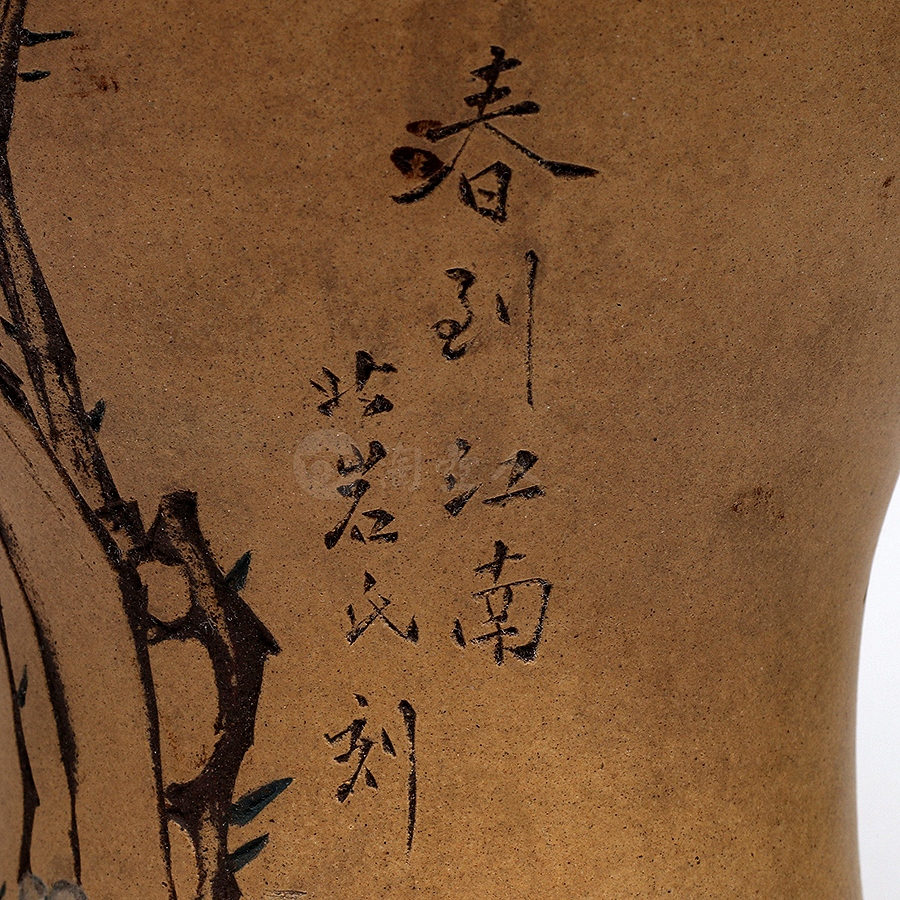 春到江南
岩氏刻